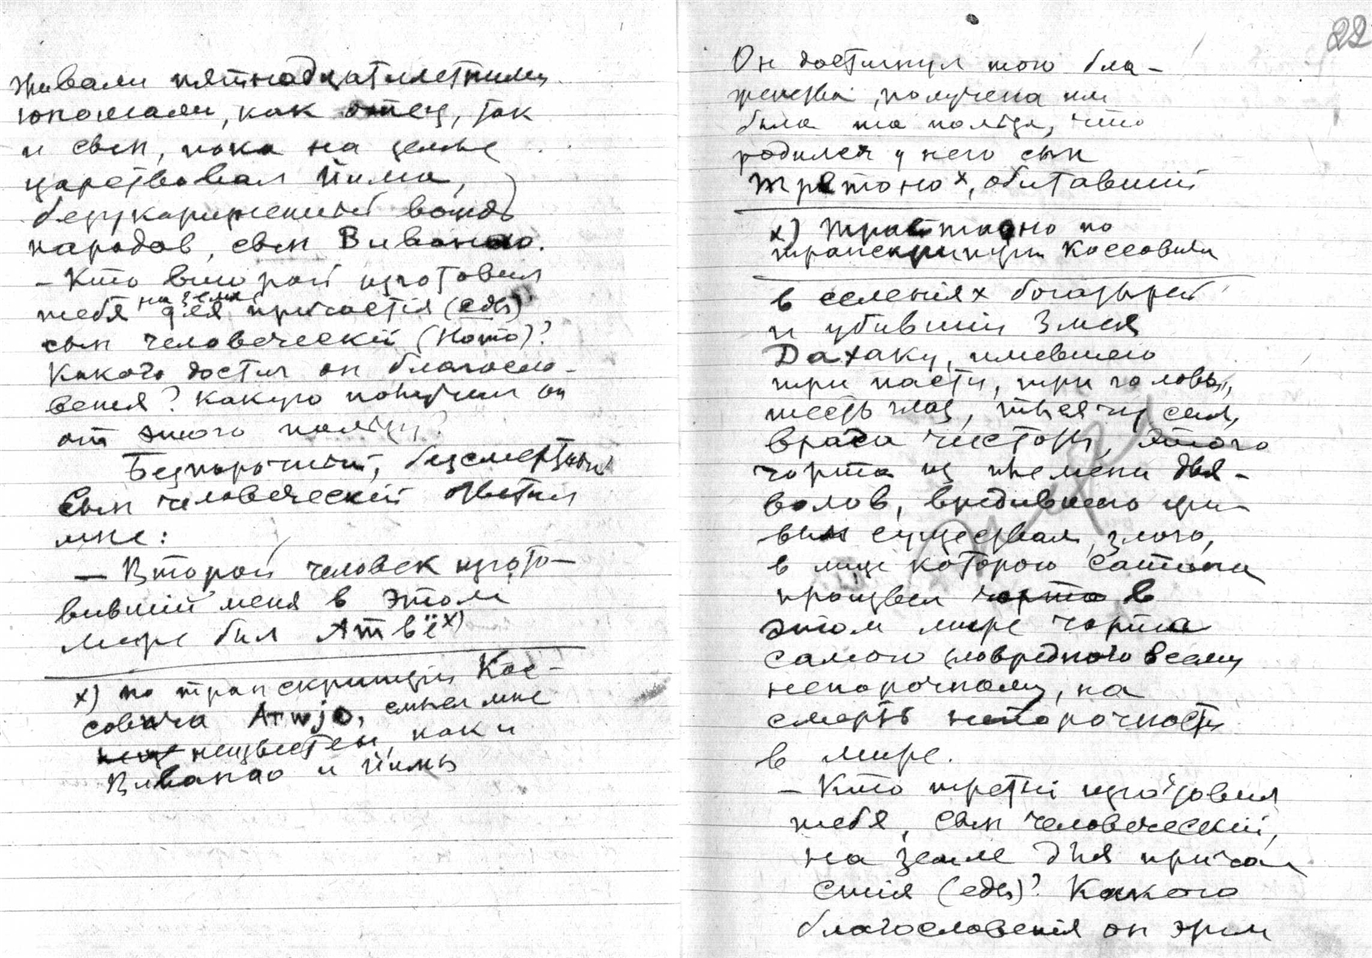 живали пятнадцатилетними
юношами, как отец, так
и сын, пока на земле
царствовал Йима,
безукоризненный вождь
народов, сын Виванао.
- Кто второй изготовил
тебя на земле для причастiя (еды)
сын человеческiй (Homo)?
Какого достиг он благосло-
венiя? Какую получил он
от этого пользу?
Безпорочный, безсмертный
Сын человеческiй ответил
мне:
— Второй человек изгото-
вившiй меня в этом
мире был Атвё х)
х) по транскрипции Кос-
совича Atwjo, смысл мне
неизвестен, как и
Виванао и Йимы
22
Он достигнул того бла-
женства, получена им
была та польза, что
родился у него сын
Третоно х, обитавшiй
х) Траетаоно по
транскрипции Коссовича
в селенiях богатырей
и убившiй Змея
Дахаку, имевшего
три пасти, три головы,
шесть глаз, тысячу сил,
врага чистоты, этого
чорта из племени дья-
волов, вредившего жи-
вым существам, злого,
в лице которого Сатана
произвел чорта в
этом мире чорта
самого зловредного всему
непорочному, на
смерть непорочности
в мире.
- Кто третiй изготовил
тебя, сын человеческiй,
на земле для прича-
стiя (еды)? Какого
благословенiя он этим